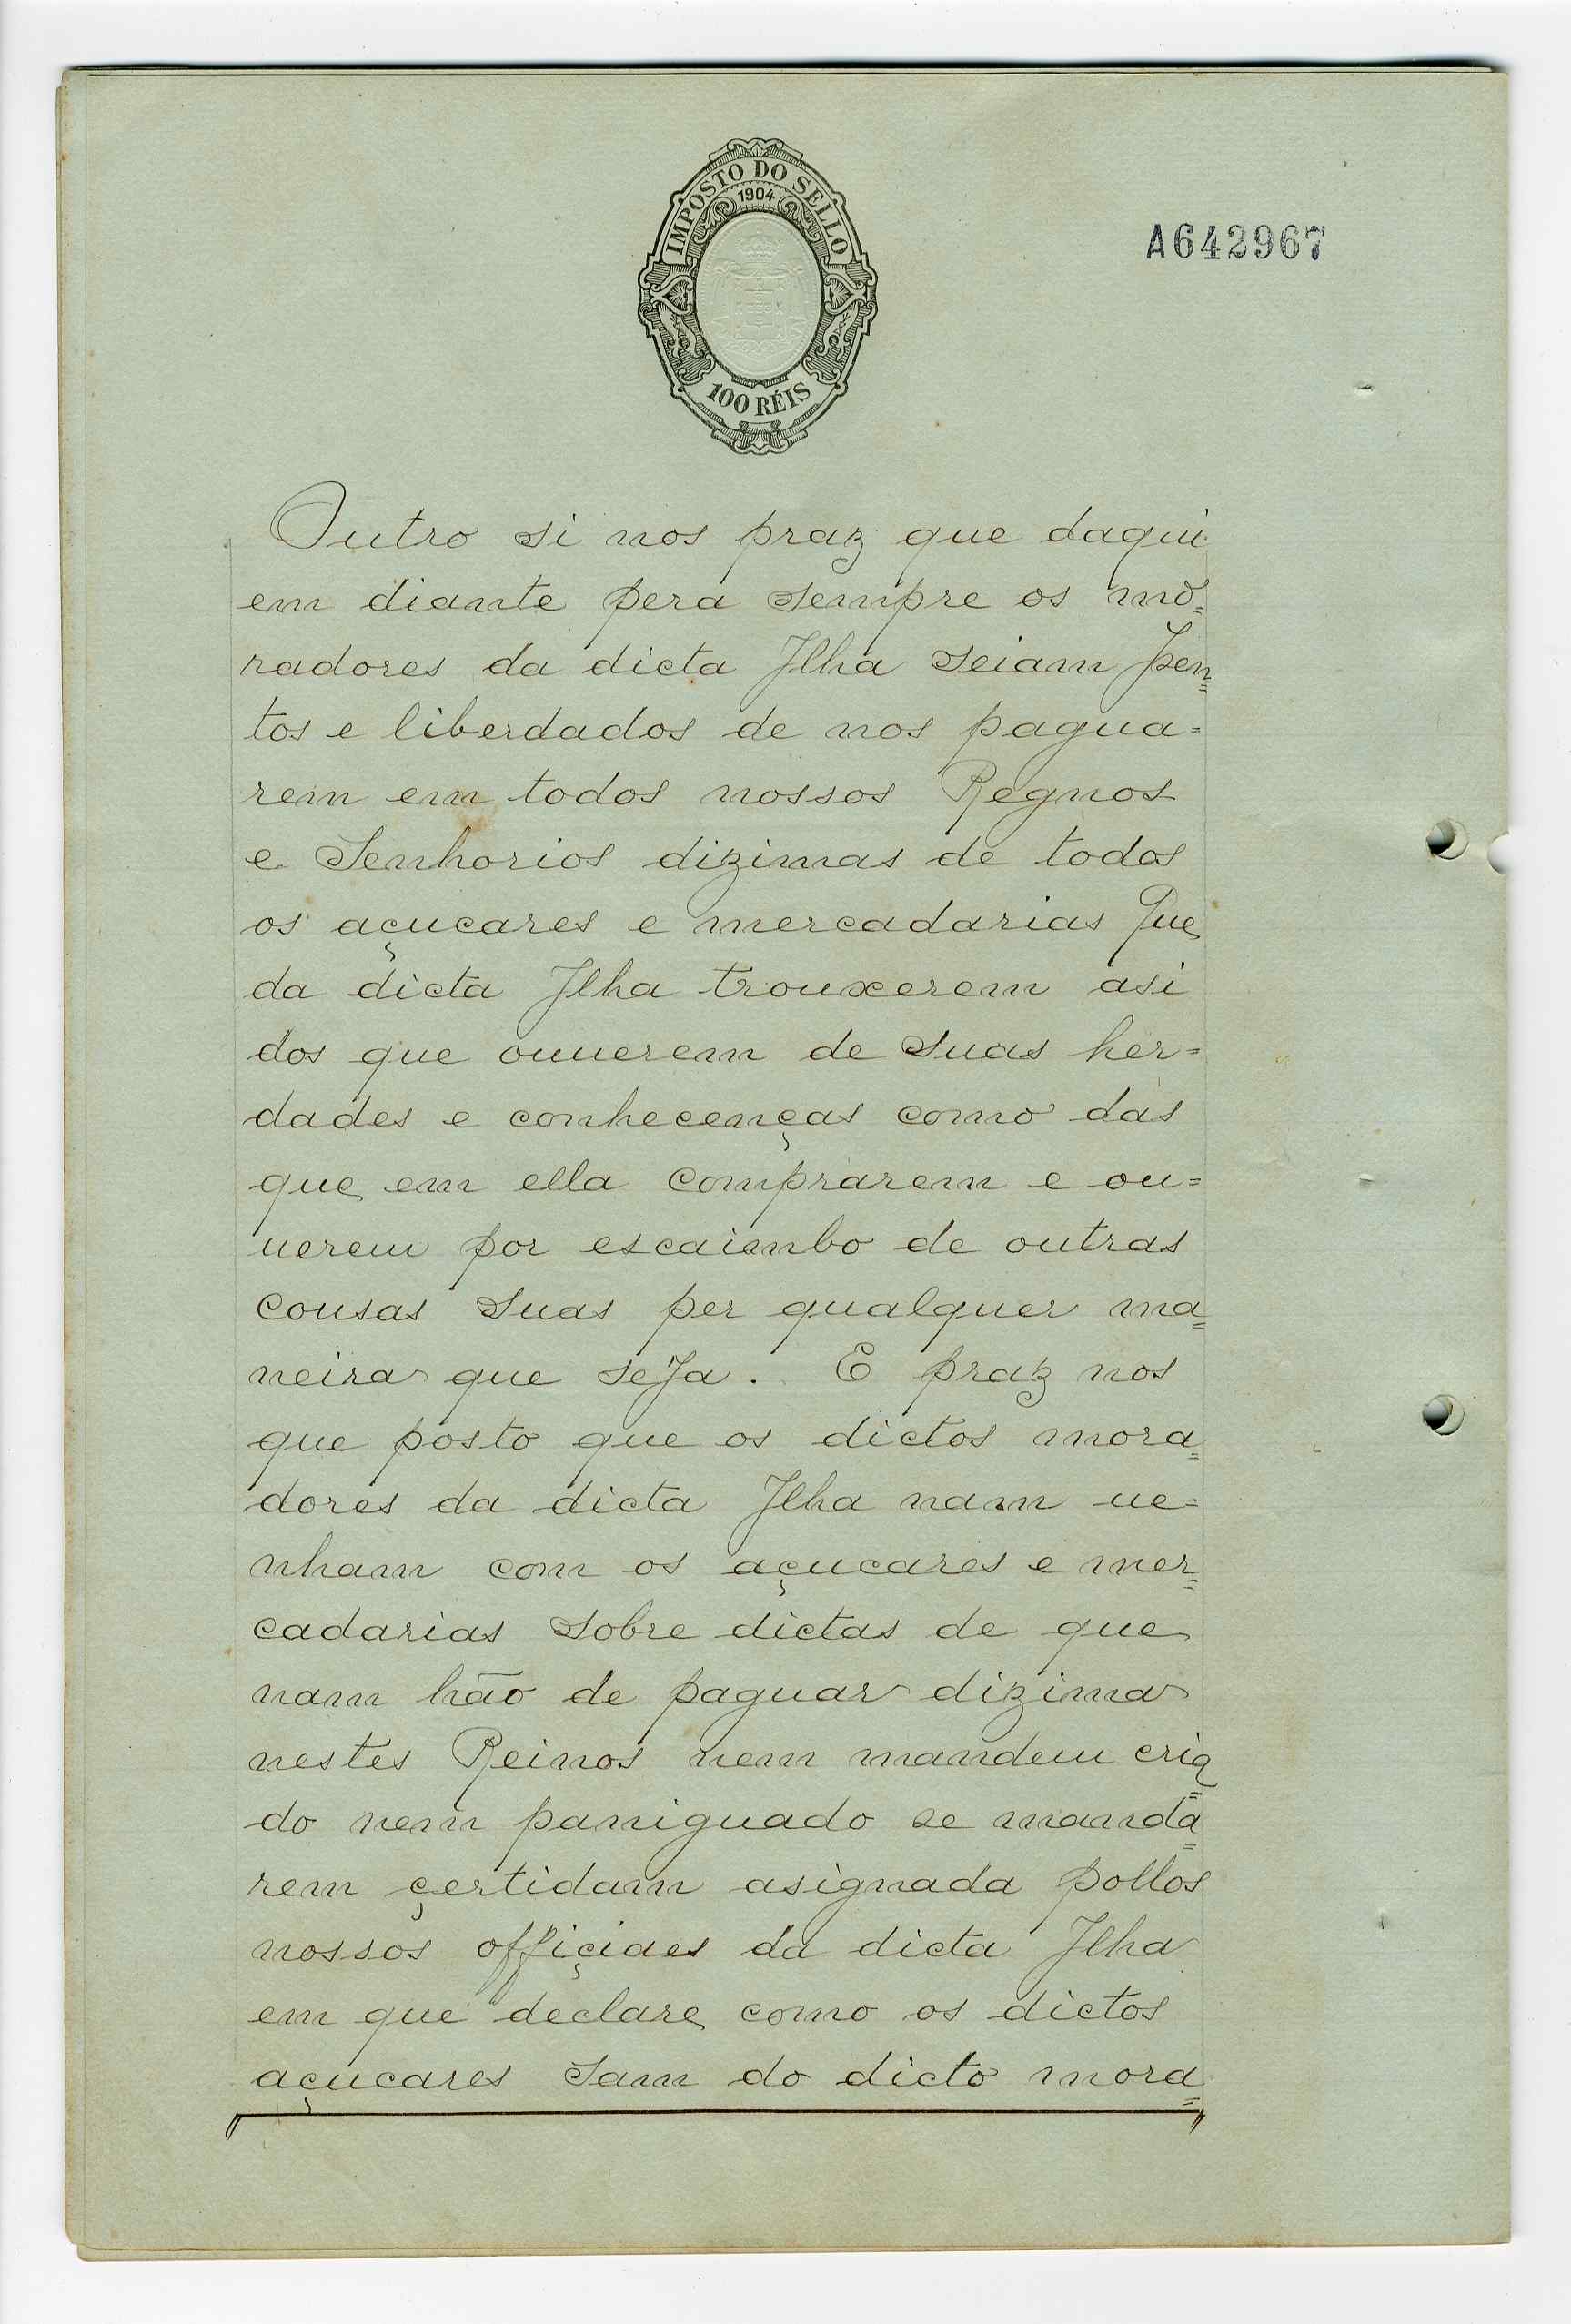 IMPOSTO DO SELLO
1904
100 RÉIS
A642967
Outro si nos praz que daqui
em diante pera sempre os mo=
radores da dicta Jlha seiam Jsen=
tos e liberdados de nos pagua=
rem em todos nossos Regnos
e Senhorios dizimas de todos
os açucares e mercadarias Que
da dicta Jlha trouxerem asi
dos que ouuerem de suas her=
dades e conhecenças como das
que em ella comprarem e ou=
uerem por escaimbo de outras
cousas suas per qualquer ma=
neira que seJa. E praz nos
que posto que os dictos mora=
dores da dicta Jlha nam ue=
nham com os açucares e mer=
cadarias sobre dictas de que
nam hão de paguar dizima
nestes Reinos nem mandem cria=
do nem paniguado se manda=
rem çertidam asignada pollos
nossos offiçiaes da dicta Jlha
em que declare como os dictos
açucares sam do dicto mora=